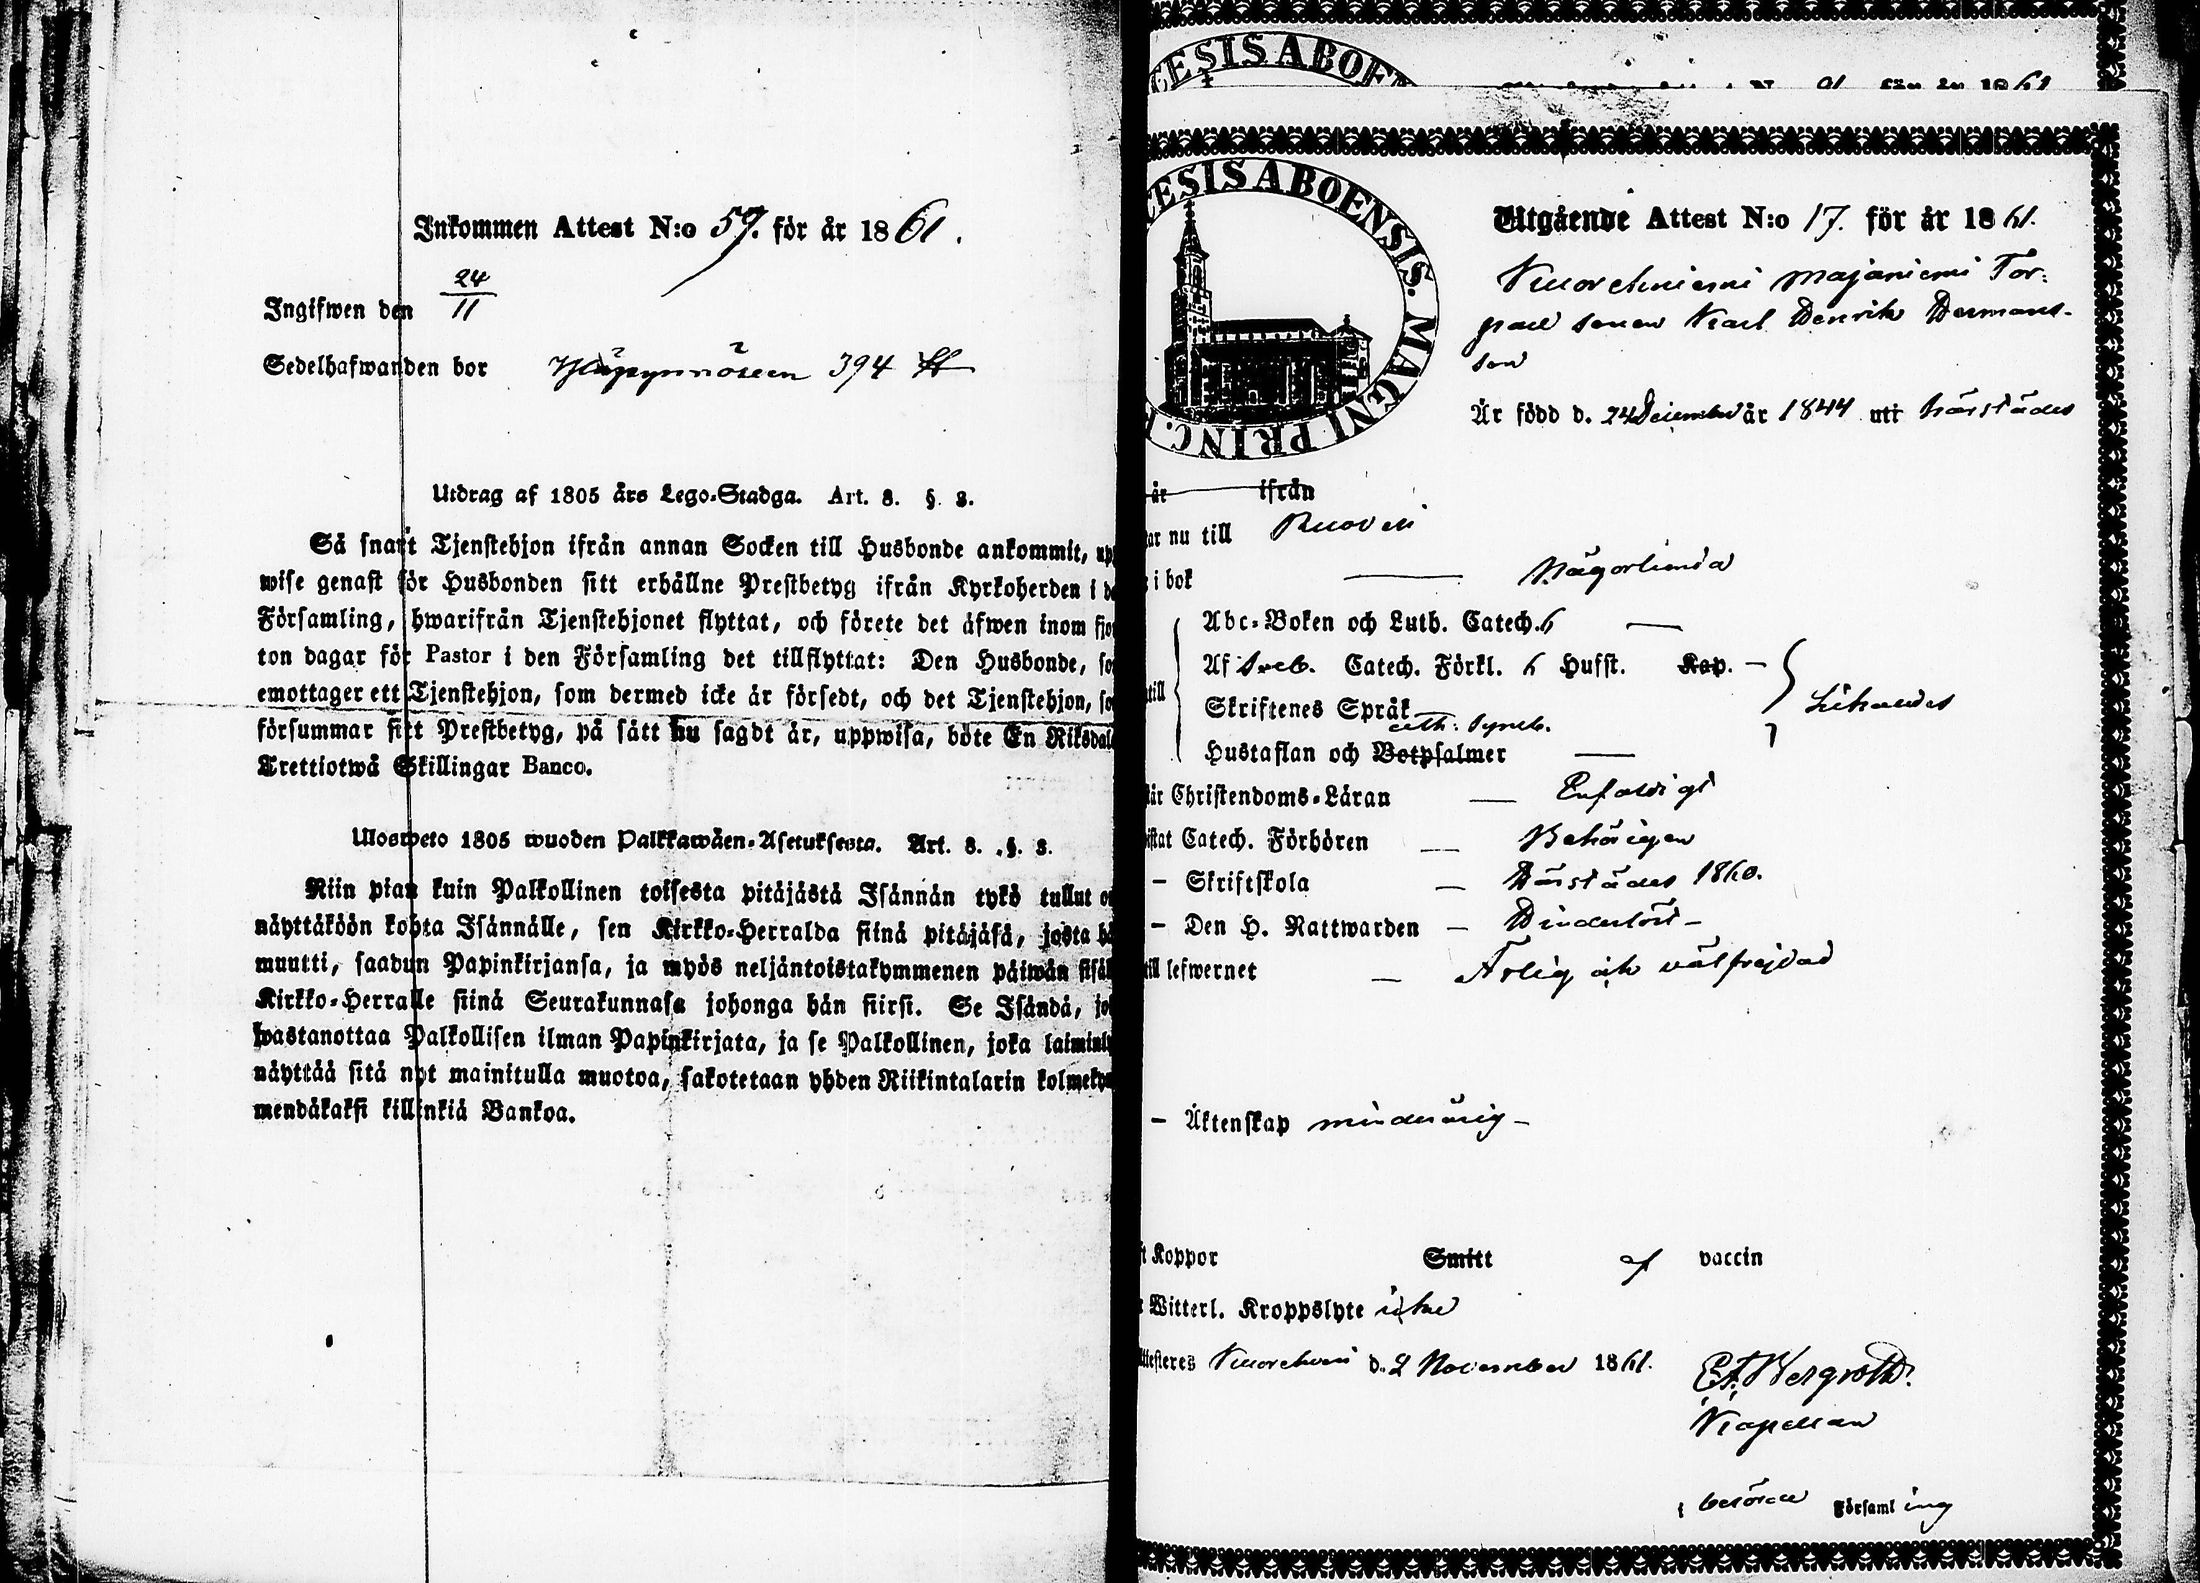 Inkommen Attest N:o 59. för år 1861.
Ingifwen den 24/11
Sedelhafwanden bor 394
Utdrag af 1805 års Lego-Stadga. Art. 8. §. 3.
Så snart Tjenstehjon ifrån annan Socken till Husbonde ankommit, upp
wise genast för Husbonden sitt erhållne Prestbetyg ifrån Kyrkoherden i de
Församling, hwarifrån Tjenstehjonet flyttat, och förete det äfwen inom fjor
ton dagar för Pastor i den Församling det tillflyttat: Den Husbonde, so
emottager ett Tjenstehjon, som dermed icke är försedt, och det Tjenstehjon, so
försummar sitt Prestbetyg, på sätt nu sagdt är, uppwisa, böte En Riksdale
Trettiotwå Skillingar Banco.
Ulosweto 1805 wuoden Palkkawäen-Asetuksesta. Art. 8. §. 3.
Niin pian kuin Palkollinen toisesta pitäjästä Isännän tykö tullut on
näyttäköön kohta Isännälle, sen Kirkko-Herralda siinä pitäjäsä, josta hä
muutti, saadun Papinkirjansa, ja myös neljäntoistakymmenen päiwän sisäl
Kirkko-Herralle siinä Seurakunnasa johonga hän siirsi. Se Isändä, jok
wastanottaa Palkollisen ilman Papinkirjata, ja se Palkollinen, joka laiminly
näyttää sitä nyt mainitulla muotoa, sakotetaan yhden Riikintalarin kolmekym
mendäkaksi killinkiä Bankoa.
CESIS ABOEN
N 91 för år 1861
CESIS ABOENSIS. MAGNI PRINC.
Utgående Attest N:o 17. för år 1861.
Kuorehniemi Majaniemi Tor-
pare sonen Karl Henrik Hermans-
son
Är född d. 24 December år 1844 uti härstädes
är ifrån
tar nu till Ruovesi
i bok — Någorlunda
Abc-Boken och Luth. Catech. 6 —
Af Sveb. Catech. Förkl. 6 Husst. Kap. —
till
Skriftenes Språk
ath: Symb.
Hustaflan och Botpsalmer —
Likaledes
Christendoms-Läran — Enfaldigt
istat Catech. Förhören — Behörigen
- Skriftskola — Härstädes 1860.
- Den H. Nattwarden — Hinderlöst —
till lefwernet — Ärlig och välfrejdad
- Äktenskap minderårig —
ft Koppor Smitt af vaccin
Witterl. Kroppslyte icke
ttesteres Kuorehvesi d. 2 November 1861.
Bergroth.
Kapellan
i berörde Församling